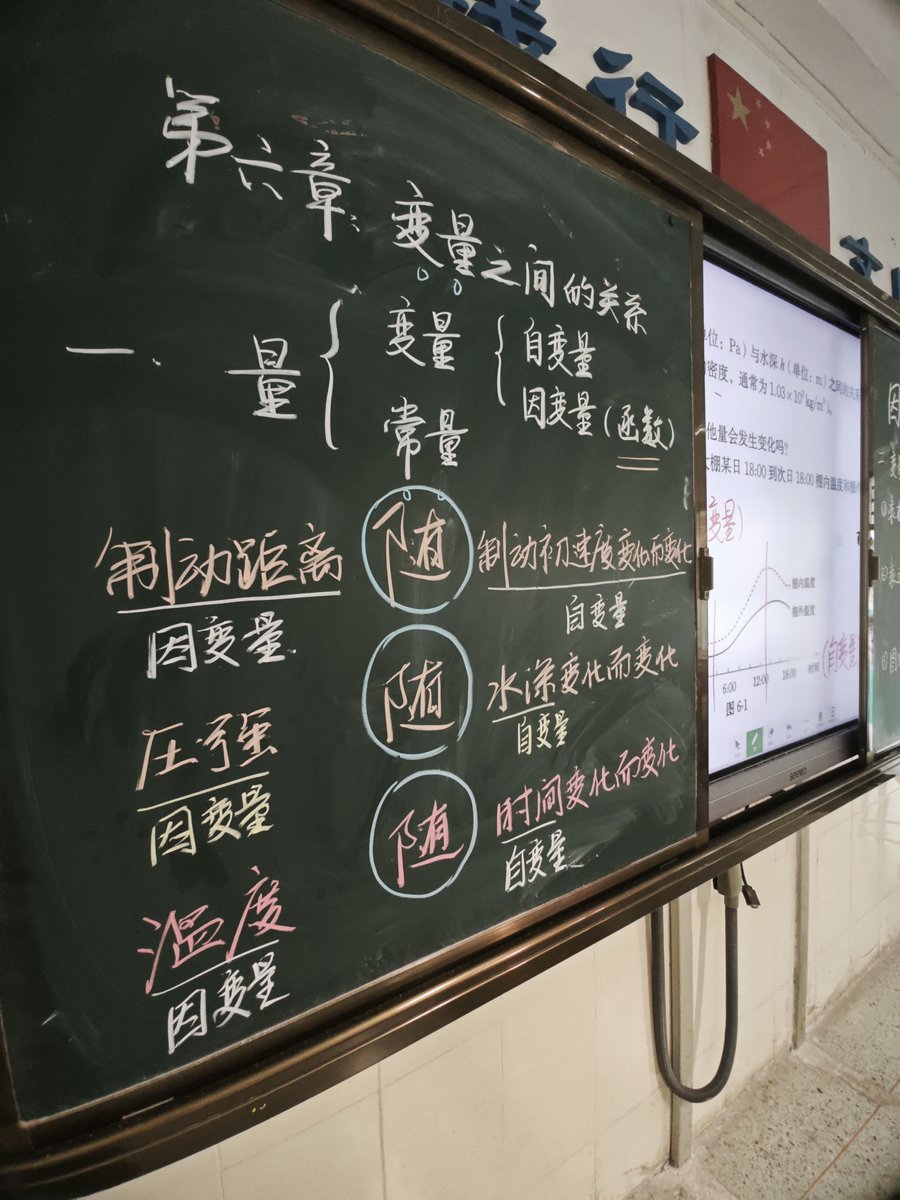 行
第六章：变量之间的关系
一、量
变量
自变量
因变量(函数)
常量
制动距离 随 制动初速度变化而变化
因变量
自变量
压强 随 水深变化而变化
因变量
自变量
温度 随 时间变化而变化
因变量
自变量
位：Pa）与水深 h（单位：m）之间的关系
密度，通常为 1.03×10³ kg/m³）。
他量会发生变化吗？
棚某日 18:00 到次日 18:00 棚内温度和棚外
变量)
棚内温度
棚外温度
6:00 12:00 18:00 时间
(自变量
图 6-1
seewo
因